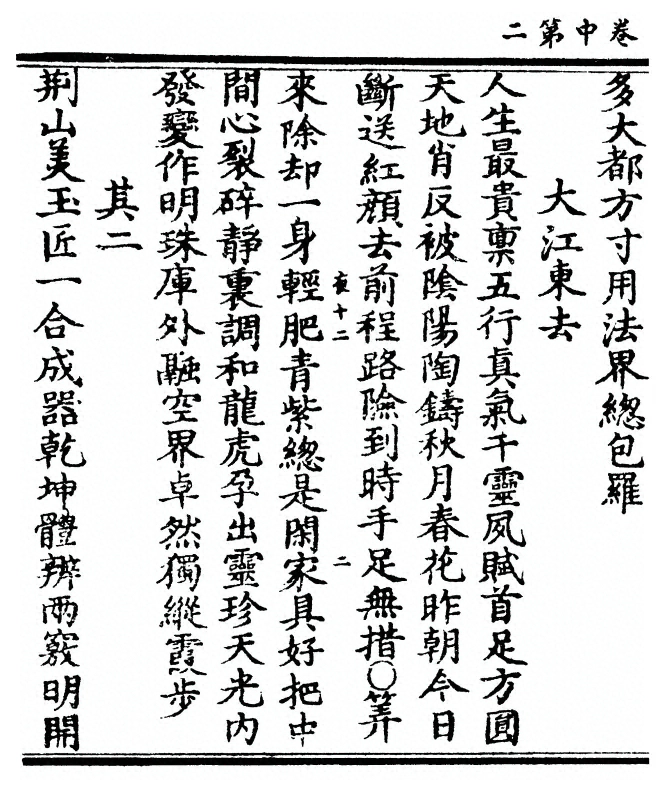 卷中第二
多大都方寸用法界總包羅
大江東去
人生最貴禀五行真氣千靈夙賦首足方圓
天地肖反被陰陽陶鑄秋月春花昨朝今日
斷送紅顏去前程路險到時手足無措○筭
來除却一身輕肥青紫總是閑家具好把中
夜十二
二
間心裂碎静裏調和龍虎孕出靈珍天光内
發變作明珠庫外融空界卓然獨縱霞步
其二
荆山美玉匠一合成器乾坤體辨兩竅明開